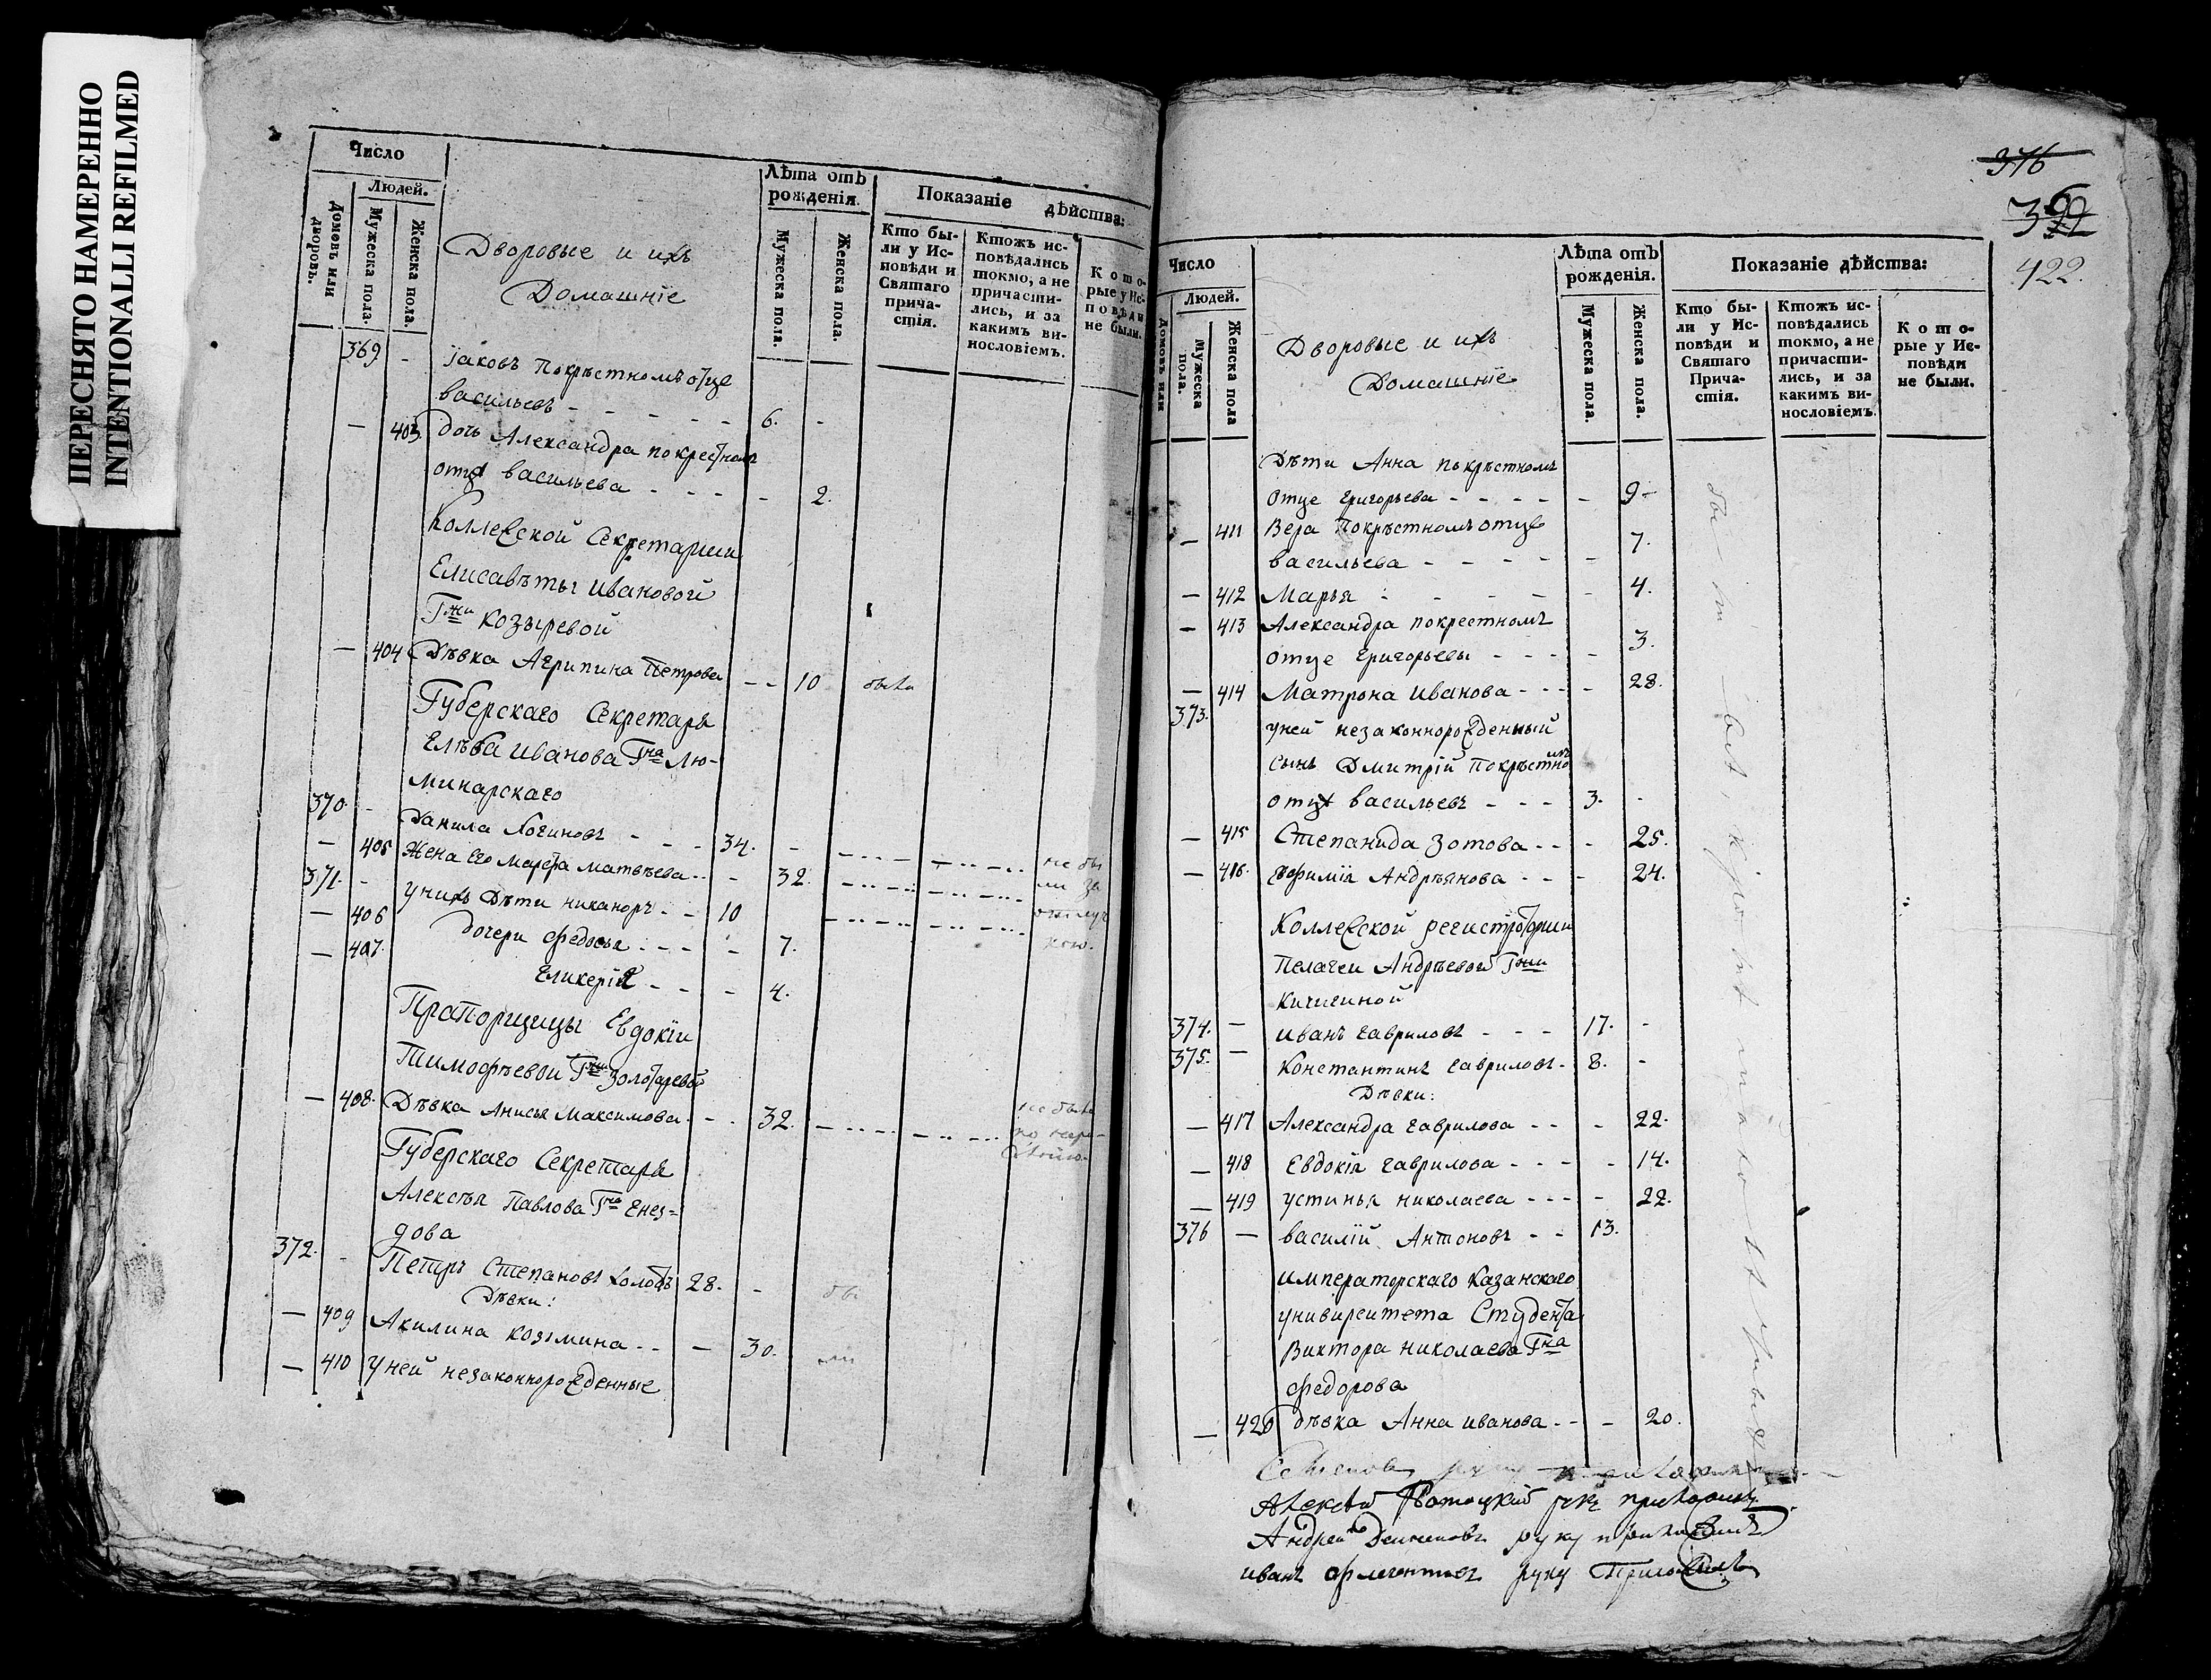 ПЕРЕСНЯТО НАМЕРЕННО
INTENTIONALLI REFILMED
Число
Людей.
Домовъ или дворовъ.
Мужеска пола.
Женска пола.
Дворовые и ихъ
Домашніе
Лѣта отъ рожденія.
Мужеска пола.
Женска пола.
Показаніе дѣйства:
Кто были у Исповѣди и Святаго причастія.
Ктожъ исповѣдались токмо, а не причастились, и за какимъ винословіемъ.
Которые у Исповѣди не были.
369 - Іаковъ покрѣстномъ отце
васильевъ - - - - - 6. -
- 403 дочь Александра покрестномъ
отце васильева - - - - 2.
Коллежской Секретарши
Елисавѣты Ивановой
Гжи козыревой
- 404 Дѣвка Агрипина Петрова - - 10 была
Губерскаго Секретаря
Глѣба Иванова Гна Лю-
минарскаго
370. - Данила Логиновъ - - - 34. - не бы
- 405 Жена Его Марфа Матвѣева - - - 32. ли за
371. - унихъ Дѣти никаноръ - - 10 отлуч
- 406 дочери Федосья - - - - 7. кою.
- 407. Гликерія - - - 4.
Прапорщицы Евдокіи
Тимофѣевой Гжи Золотаревой
- 408. Дѣвка Анисья Максимова - - - 32. не была
по нере-
Губерскаго Секретаря
Алексѣя Павлова Гна Гнез=
дова
372. - Петръ Степановъ холостъ 28. - бы
Дѣвки:
- 409 Акилина козмина - - - 30. ли
- 410 Уней незаконнорожденные
376
422.
Число
Людей.
Домовъ или
Мужеска пола.
Женска пола
Дворовые и ихъ
Домашніе
Лѣта отъ рожденія.
Мужеска пола.
Женска пола.
Показаніе дѣйства:
Кто были у Исповѣди и Святаго Причастія.
Ктожъ исповѣдались токмо, а не причастились, и за какимъ винословіемъ.
Которые у Исповѣди не были.
Дѣти Анна покрѣстномъ
отце григорьева - - - - - 9 -
- 411 Вера покрѣстномъ отце
васильева - - - - - 7.
- 412 Марья - - - - - 4.
- 413 Александра покрестномъ
отце григорьевы - - - - 3.
- 414 Матрона Иванова - - - - 28.
373. уней незаконнорожденный
сынъ Дмитрій покрѣстномъ
отце васильевъ - - - 3. -
- 415 Степанида Зотова - - - 25.
- 416. Ефимія Андрѣянова - - - 24.
Коллежской регистраторши
Пелагеи Андрѣевой Гжи
Кичигиной
374. - Иванъ гавриловъ - - - 17. -
375. - Константинъ гавриловъ - 8. -
Дѣвки:
- 417 Александра гаврилова - - - 22.
- 418 Евдокія гаврилова - - - - 14.
- 419 устинья николаева - - - - 22.
376 - василій Антоновъ - - 13.
императорскаго Казанскаго
университета Студента
Виктора николаева Гна
Федорова
- 420 дѣвка Анна иванова - - - 20.
руку
Алексей руку приложилъ
Андрей руку приложилъ
иванъ руку приложилъ